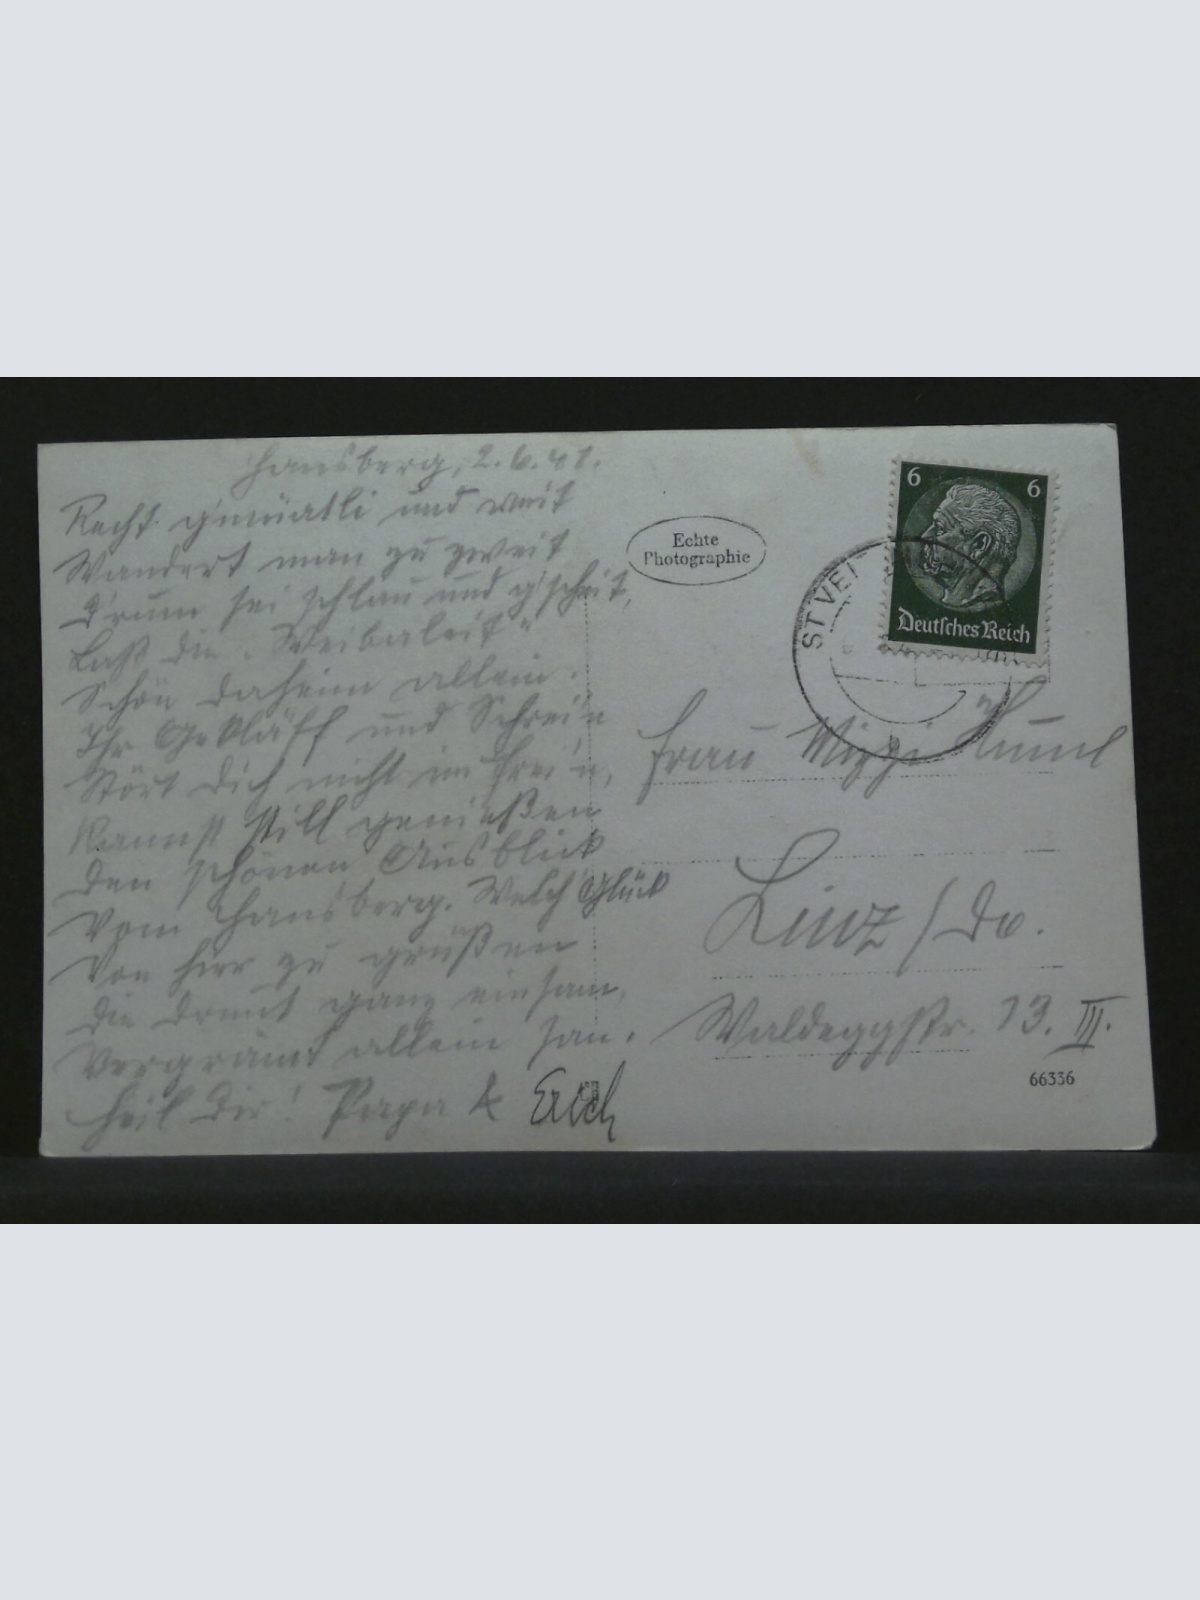 Hansberg, 2.6.41.
Recht g'müatli und weit
Wandert man zu zweit
D'rum sei schlau und g'scheit,
Laß die "Weibaleit"
Schön daheim allein.
Ihr Gekläff und Schrei'n
Stört Dich nicht im Frei'n,
Kannst still genießen
Den schönen Ausblick
Vom Hansberg. Welch' Glück
Von hier zu grüßen
Die Dramt ganz einsam,
Vergrämt allein san.
Heil Dir! Papa &
Erich
Echte
Photographie
6 6
Deutsches Reich
ST VEI
Frau Mizzi
Linz / Do.
Waldeggstr. 13. III.
66336